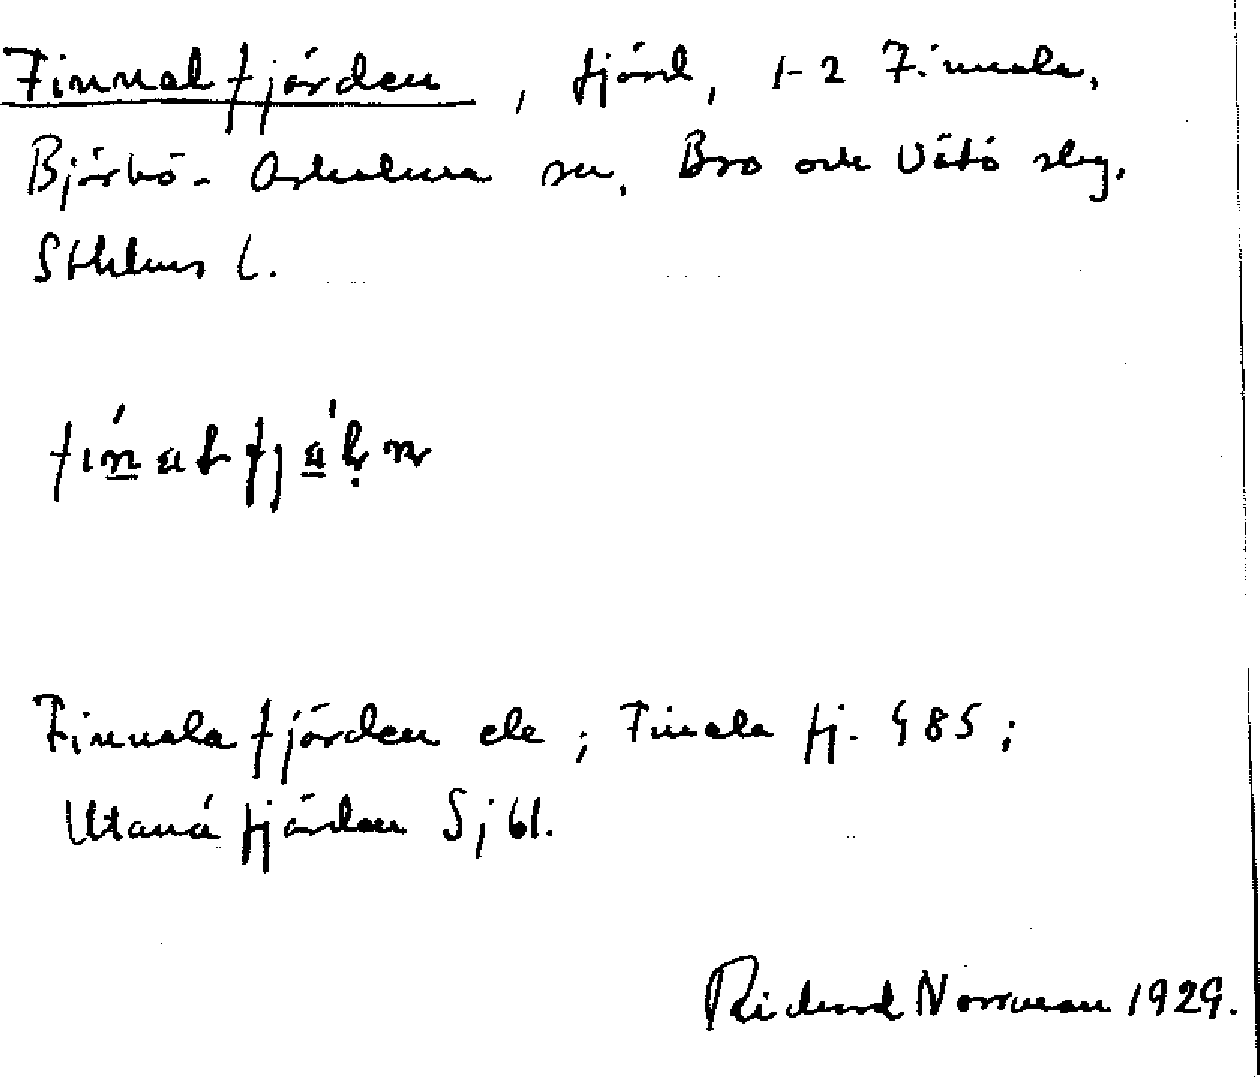 Finnalfjärden, fjärd, 1-2 Finnala,
Björkö-Arholma sn, Bro och Vätö slg.
Sthlms l.
Finnalafjärden ek; Finala fj. G85;
Utanå fjärden Sjbl.
Richard Norrman 1929.